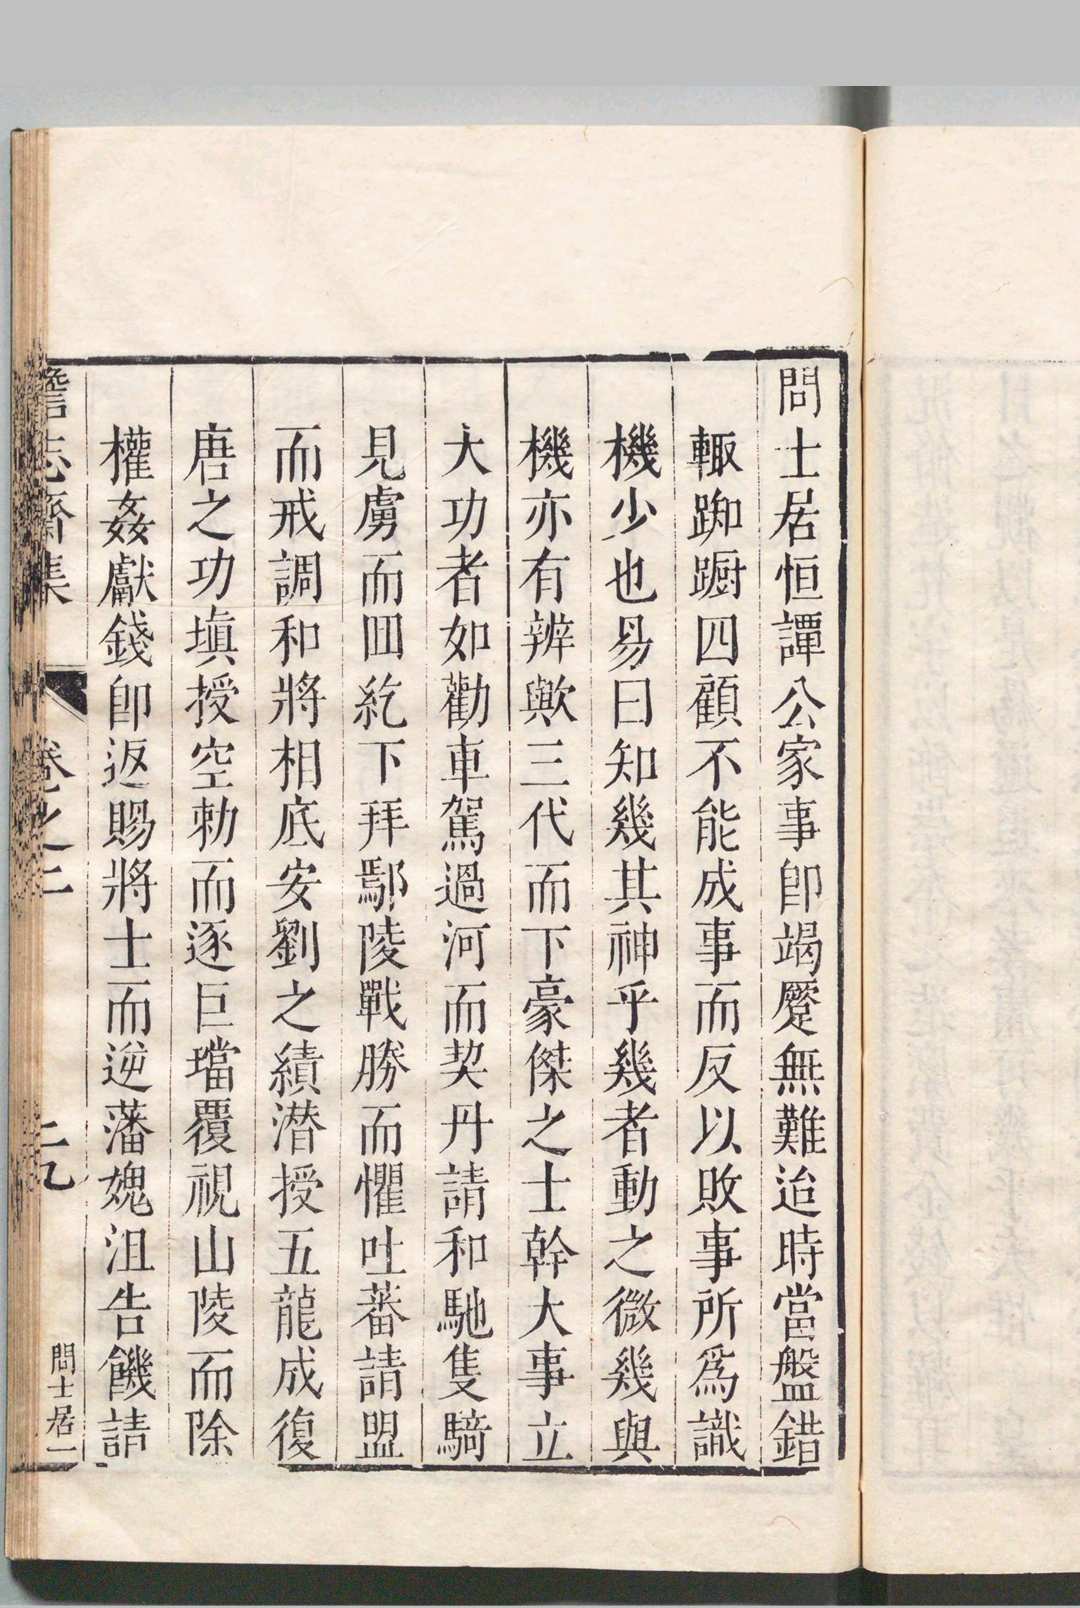 問士居恒譚公家事卽竭蹷無難迨時當盤錯
輙踟蹰四顧不能成事而反以敗事所爲識
機少也易曰知幾其神乎幾者動之微幾與
機亦有辨歟三代而下豪傑之士幹大事立
大功者如勸車駕過河而契丹請和馳隻騎
見虜而回紇下拜鄢陵戰勝而懼吐蕃請盟
而戒調和將相底安劉之績潜授五龍成復
唐之功塡授空勅而逐巨璫覆視山陵而除
權姦獻錢卽返賜將士而逆藩媿沮告饑請
澹志齋集
卷之二
二九
問士居一